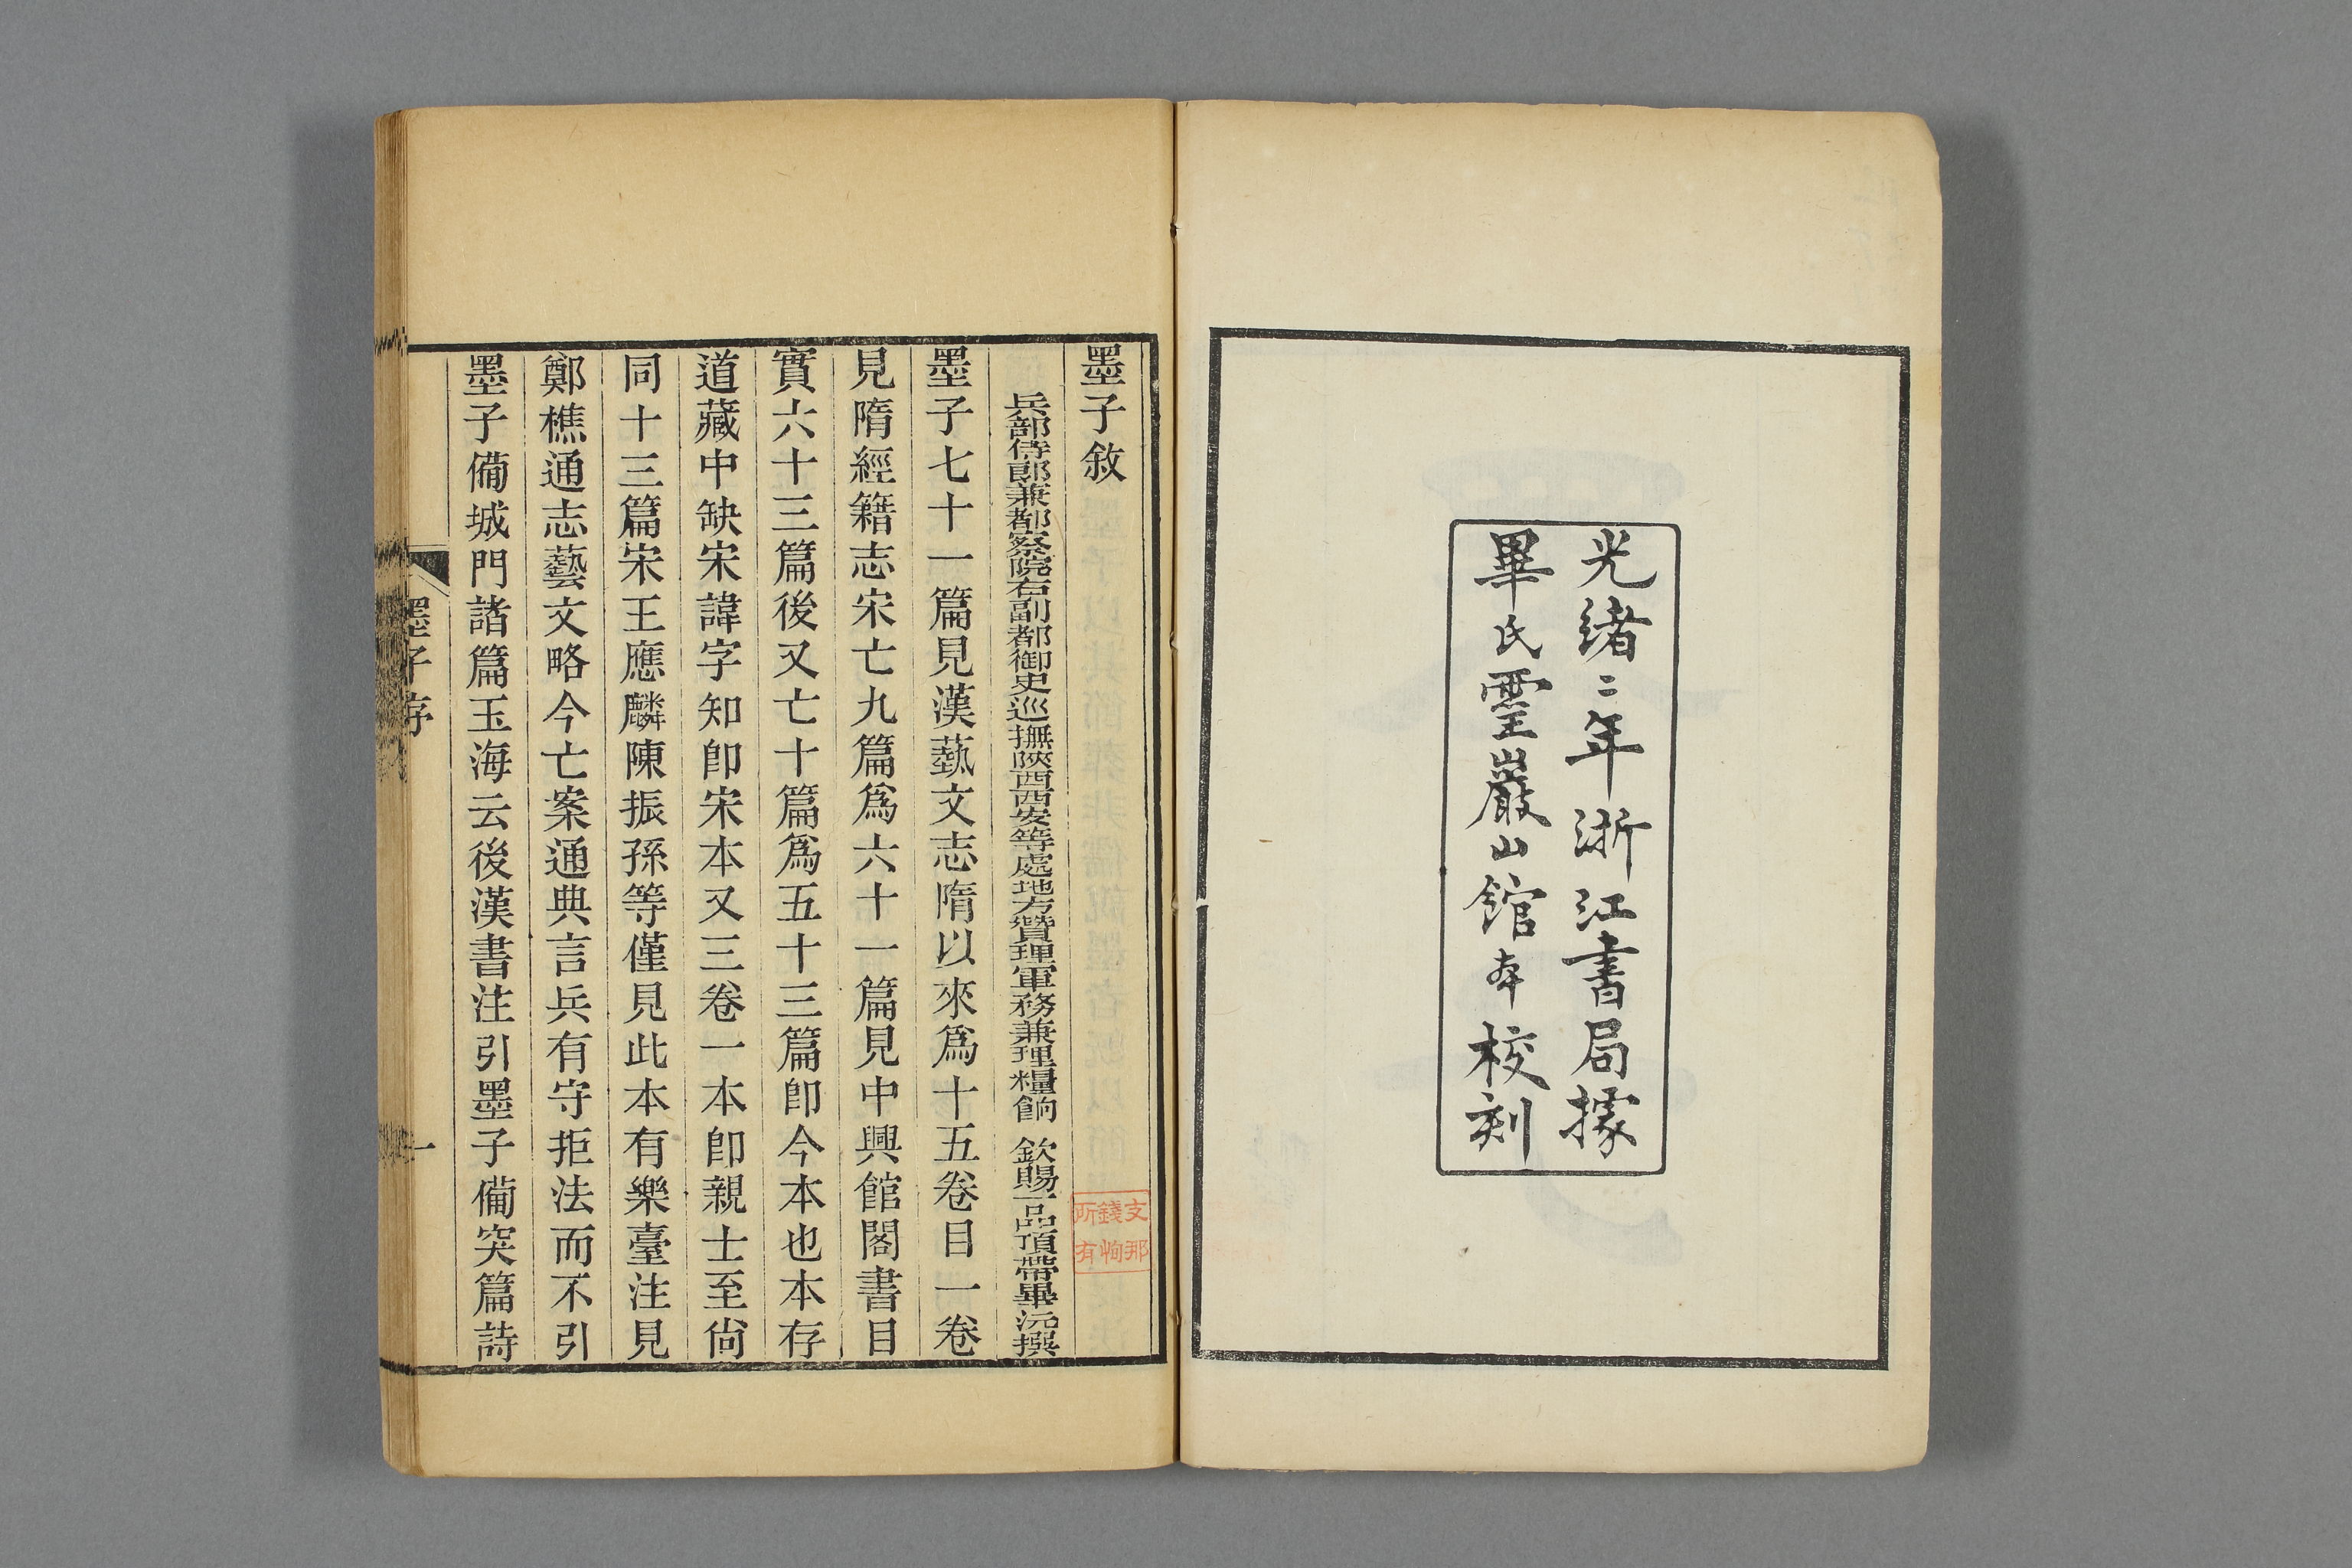 光緒二年浙江書局據
畢氏靈巖山館本校刻
墨子敘
兵部侍郎兼都察院右副都御史巡撫陝西西安等處地方贊理軍務兼理糧餉 欽賜一品頂帶畢沅撰
墨子七十一篇見漢蓺文志隋以來爲十五卷目一卷
見隋經籍志宋亡九篇爲六十一篇見中興館閣書目
實六十三篇後又亡十篇爲五十三篇卽今本也本存
道藏中缺宋諱字知卽宋本又三卷一本卽親士至尙
同十三篇宋王應麟陳振孫等僅見此本有樂臺注見
鄭樵通志藝文略今亡案通典言兵有守拒法而不引
墨子備城門諸篇玉海云後漢書注引墨子備突篇詩
墨子序
一
支那
錢恂
所有